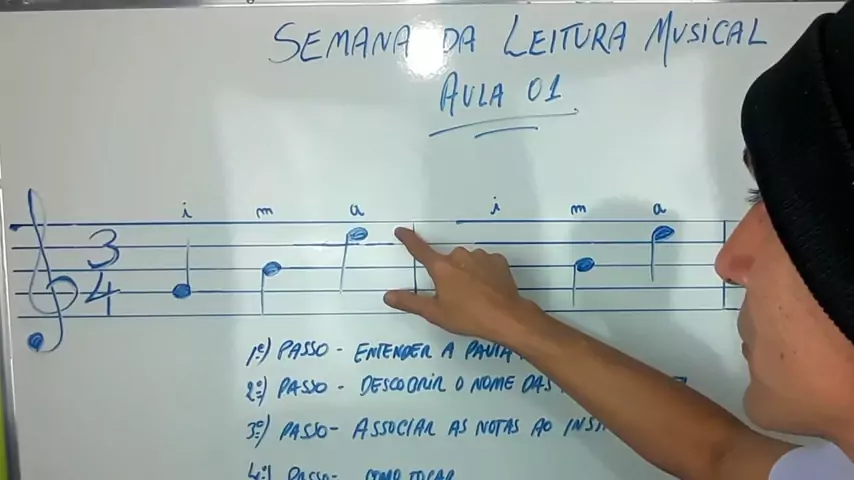 SEMANA DA LEITURA MUSICAL
AULA 01
i m a i m a
3
4
1º) PASSO - ENTENDER A PAUTA
2º) PASSO - DESCOBRIR O NOME DAS
3º) PASSO - ASSOCIAR AS NOTAS AO
4º) PASSO - COMO TOCAR